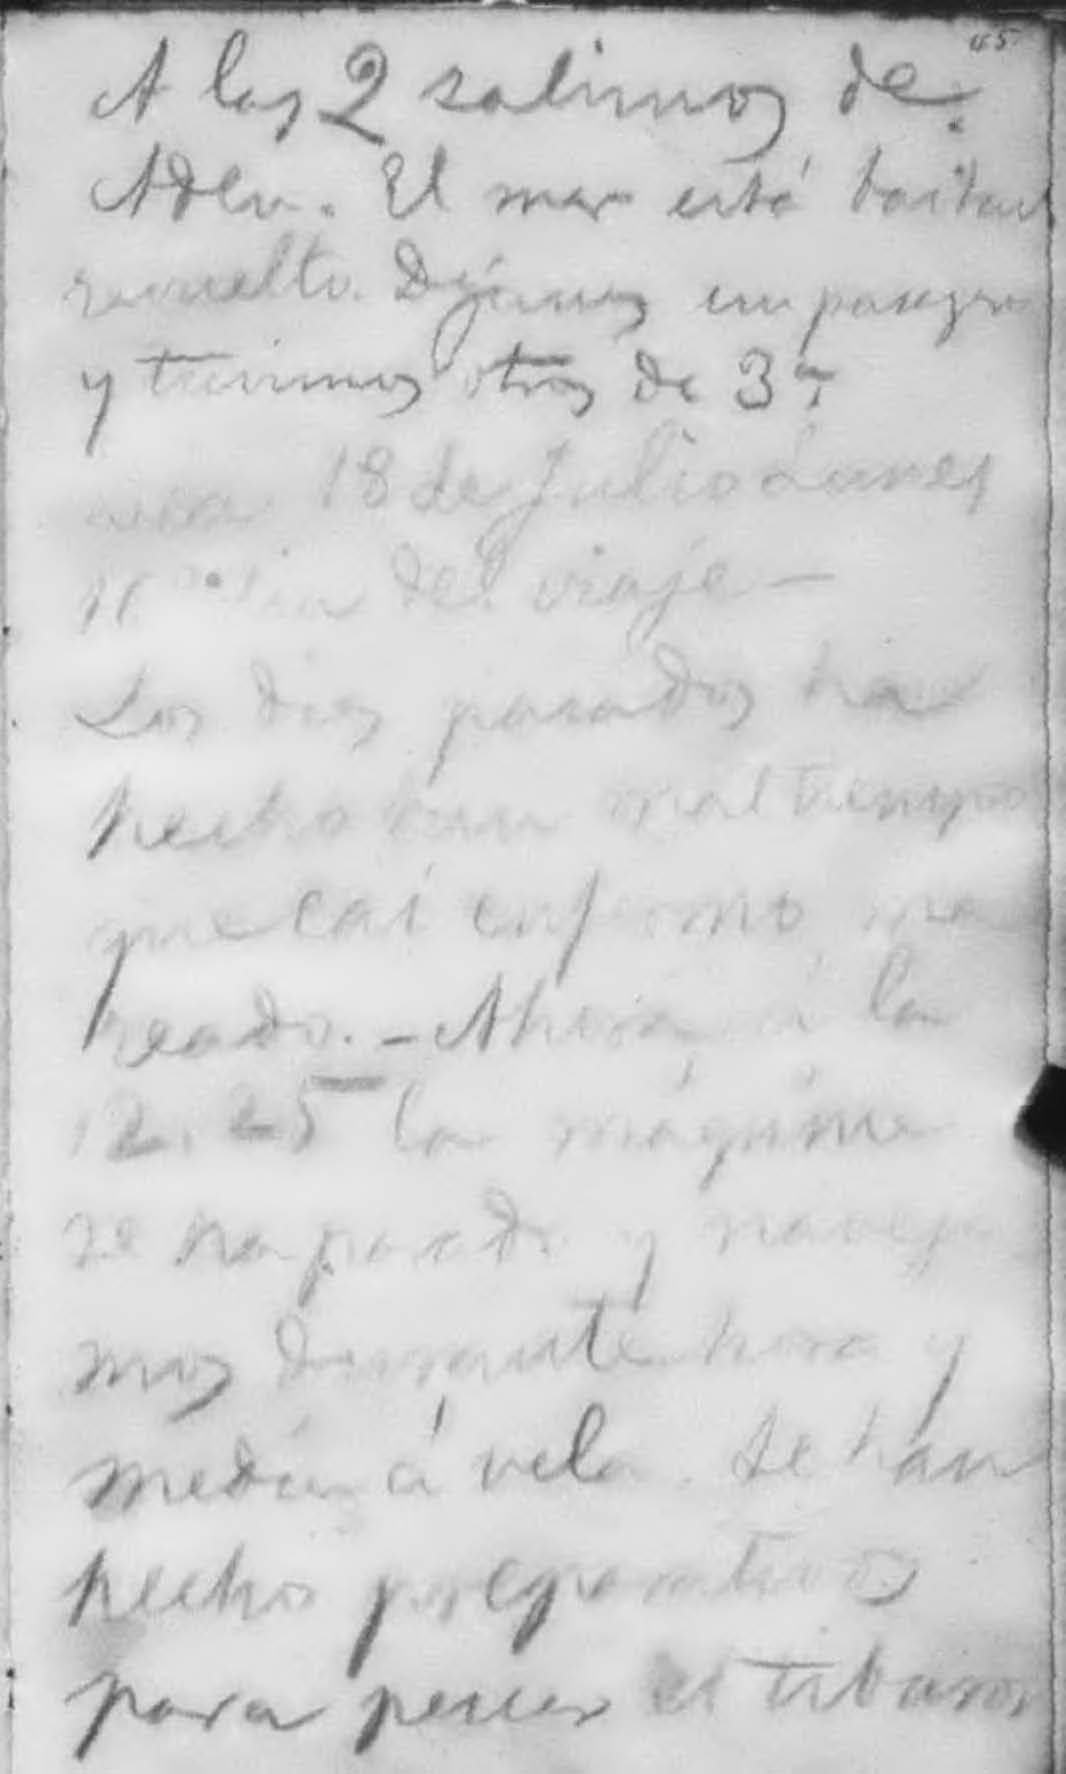 45
A las 2 salimos de
Aden. El mar está bastan
revuelto. Dejamos un pasagero
y tuvimos otros de 3ª
18 de Julio Lunes
día del viaje —
Los días pasados ha
hecho mal tiempo
que caí enfermo ma
reado. — Ahora á la
12.25 la máquina
se ha parado y navega
mos durante hora y
media á vela. Se han
hecho preparativos
para pescar el tiburon